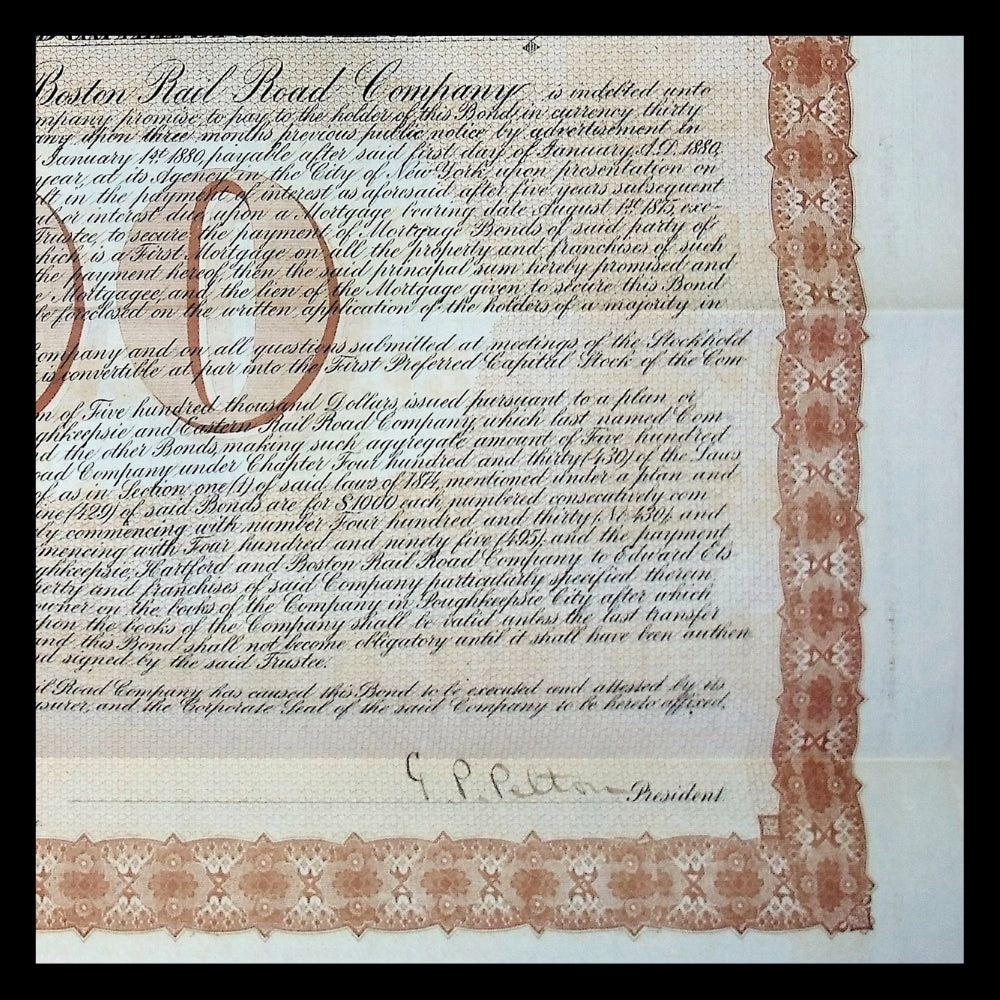 Boston Rail Road Company is indebted unto
mpany promise to pay to the holder of this Bond, in currency thirty
any upon three months previous public notice by advertisement in
January 1st 1880, payable after said first day of January A.D. 1880,
year, at its Agency in the City of New York, upon presentation on
in the payment of interest as aforesaid after five years subsequent
al or interest due upon a Mortgage bearing date August 1st 1875, exe-
Trustee, to secure the payment of Mortgage Bonds of said party of
hich is a First Mortgage on all the property and franchises of such
the payment hereof, then the said principal sum hereby promised and
e Mortgagee, and the lien of the Mortgage given to secure this Bond
be foreclosed on the written application of the holders of a majority in
00
Company and on all questions submitted at meetings of the Stockhold
is convertible at par into the First Preferred Capital Stock of the Com
n of Five hundred thousand Dollars issued pursuant to a plan or
ghkeepsie and Eastern Rail Road Company, which last named Com
d the other Bonds, making such aggregate amount of Five hundred
oad Company under Chapter Four hundred and thirty (430) of the Laws
of as in Section one (1) of said laws of 1874 mentioned under a plan and
ne (429) of said Bonds are for $1000 each numbered consecutively com
ly commencing with number Four hundred and thirty (No. 430) and
mencing with Four hundred and ninety five (495) and the payment
ghkeepsie, Hartford and Boston Rail Road Company to Edward Els
perty and franchises of said Company particularly specified therein
owner on the books of the Company in Poughkeepsie City after which
upon the books of the Company shall be valid unless the last transfer
and this Bond shall not become obligatory until it shall have been authen
d signed by the said Trustee.
il Road Company has caused this Bond to be executed and attested by its
surer, and the Corporate Seal of the said Company to be hereto affixed.
G. P. Pelton President